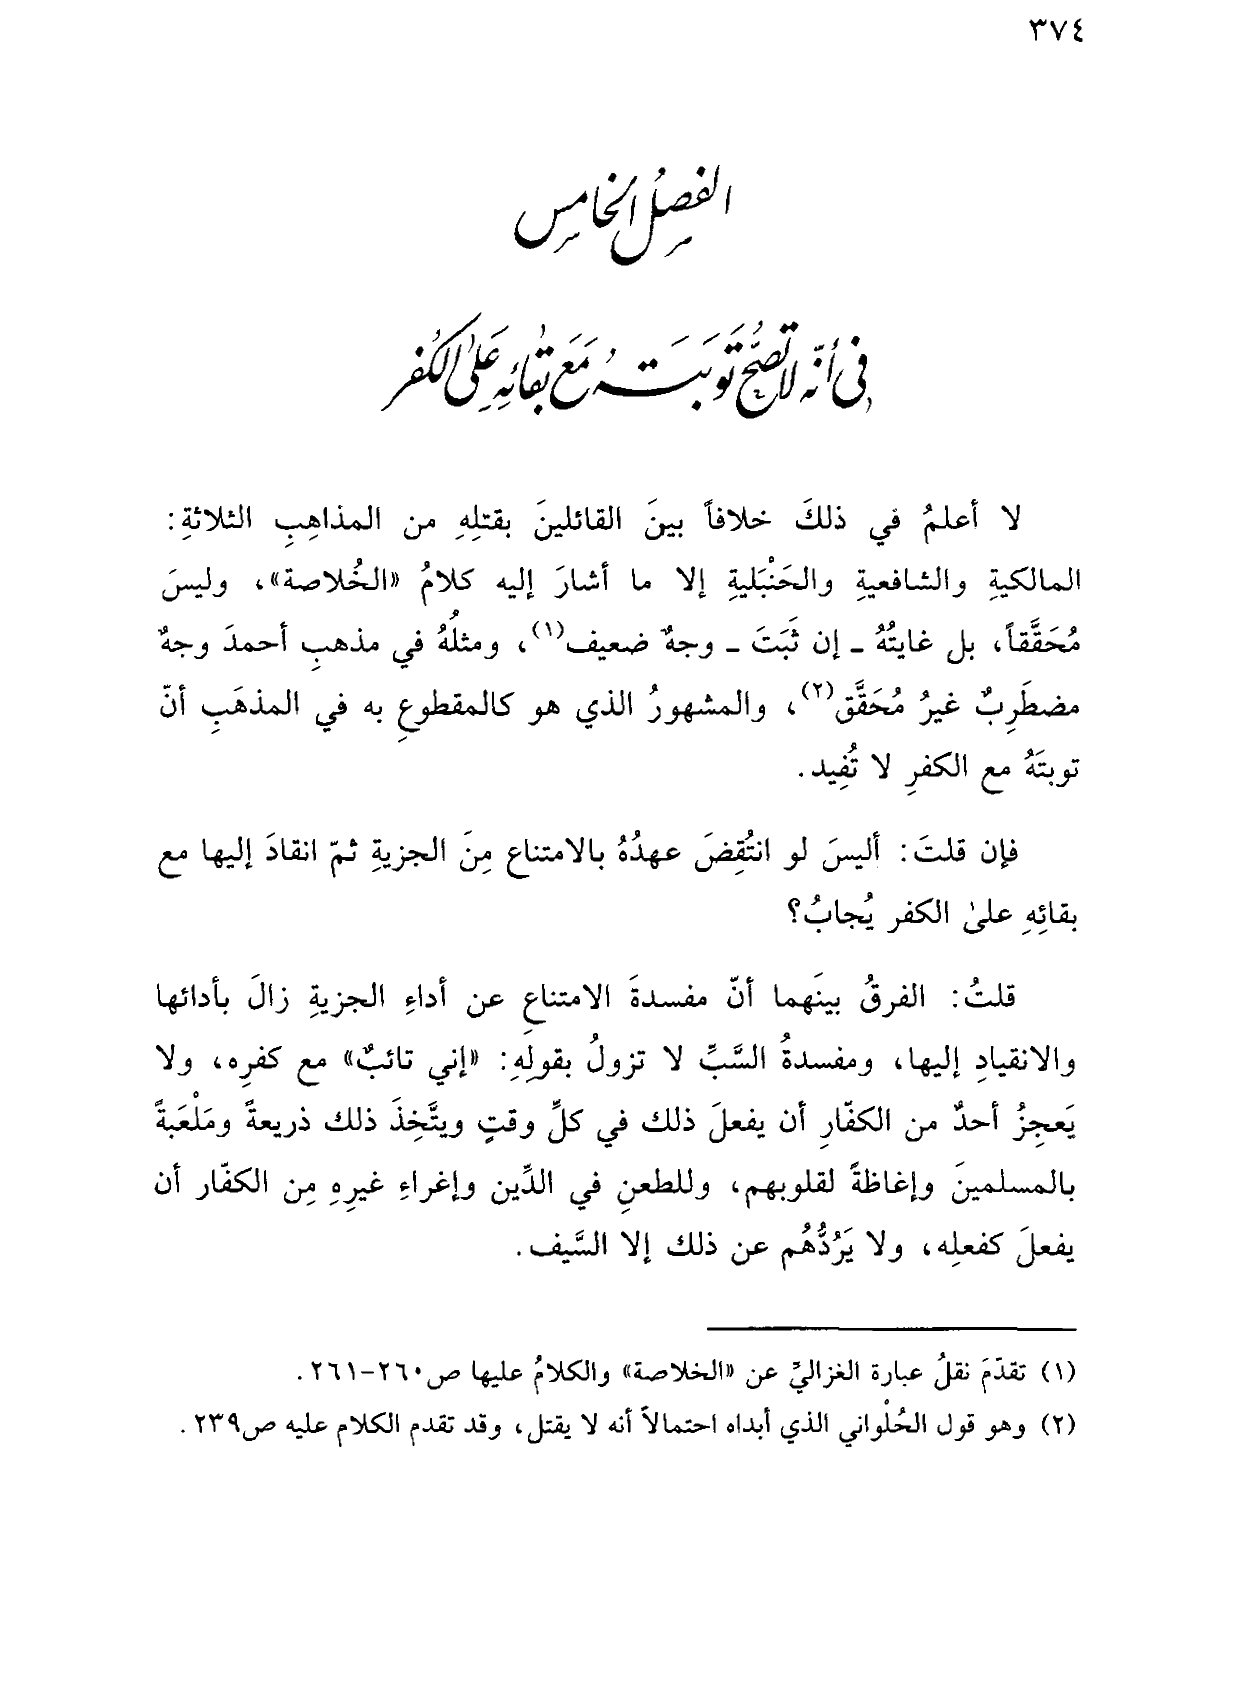 ٣٧٤
الفصل الخامس
في أنّه لا تصحّ توبَتُه مَع بَقائِهِ عَلى الكُفر
لا أعلمُ في ذلكَ خلافاً بينَ القائلينَ بقتلِهِ من المذاهِبِ الثلاثةِ:
المالكيةِ والشافعيةِ والحَنْبَليةِ إلا ما أشارَ إليه كلامُ «الخُلاصة»، وليسَ
مُحَقَّقاً، بل غايتُهُ ـ إن ثَبَتَ ـ وجهٌ ضعيف(١)، ومثلُهُ في مذهبِ أحمدَ وجهٌ
مضطَرِبٌ غيرُ مُحَقَّق(٢)، والمشهورُ الذي هو كالمقطوعِ به في المذهَبِ أنّ
توبتَهُ مع الكفرِ لا تُفِيد.
فإن قلتَ: أليسَ لو انتُقِضَ عهدُهُ بالامتناع مِنَ الجزيةِ ثمّ انقادَ إليها مع
بقائِهِ علىٰ الكفر يُجابُ؟
قلتُ: الفرقُ بينَهما أنّ مفسدةَ الامتناعِ عن أداءِ الجزيةِ زالَ بأدائها
والانقيادِ إليها، ومفسدةُ السَّبِّ لا تزولُ بقولِهِ: «إني تائبٌ» مع كفرِه، ولا
يَعجِزُ أحدٌ من الكفّارِ أن يفعلَ ذلك في كلِّ وقتٍ ويتَّخِذَ ذلك ذريعةً ومَلْعَبةً
بالمسلمينَ وإغاظةً لقلوبهم، وللطعنِ في الدِّين وإغراءِ غيرِهِ مِن الكفّار أن
يفعلَ كفعلِه، ولا يَرُدُّهُم عن ذلك إلا السَّيف.
(١) تقدّمَ نقلُ عبارة الغزاليّ عن «الخلاصة» والكلامُ عليها ص٢٦٠-٢٦١.
(٢) وهو قول الحُلْواني الذي أبداه احتمالاً أنه لا يقتل، وقد تقدم الكلام عليه ص٢٣٩.